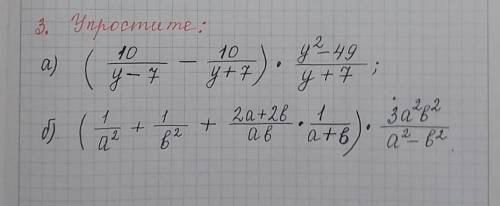 3. Упростите:
а) ( 10/(y-7) - 10/(y+7) ) · (y²-49)/(y+7) ;
б) ( 1/a² + 1/b² + (2a+2b)/(ab) · 1/(a+b) ) · (3a²b²)/(a²-b²).